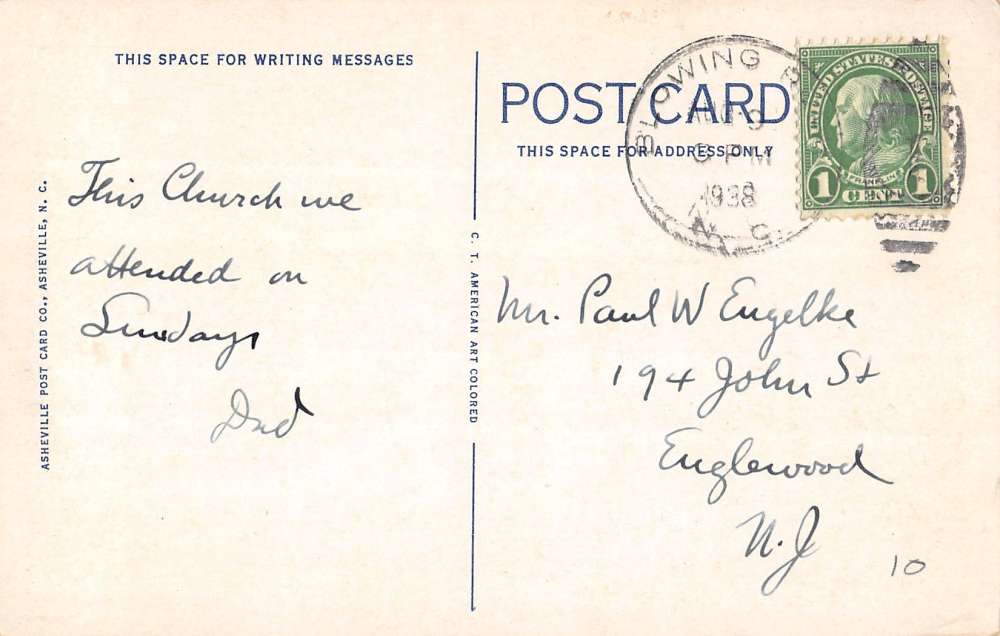 THIS SPACE FOR WRITING MESSAGES
POST CARD
THIS SPACE FOR ADDRESS ONLY
BLOWING
AUG
PM
1938
N. C.
UNITED STATES POSTAGE
FRANKLIN
1 CENT 1
This Church we
attended on
Sundays
Dad
ASHEVILLE POST CARD CO., ASHEVILLE, N. C.
C. T. AMERICAN ART COLORED
Mr. Paul W Engelke
194 John St
Englewood
N.J
10